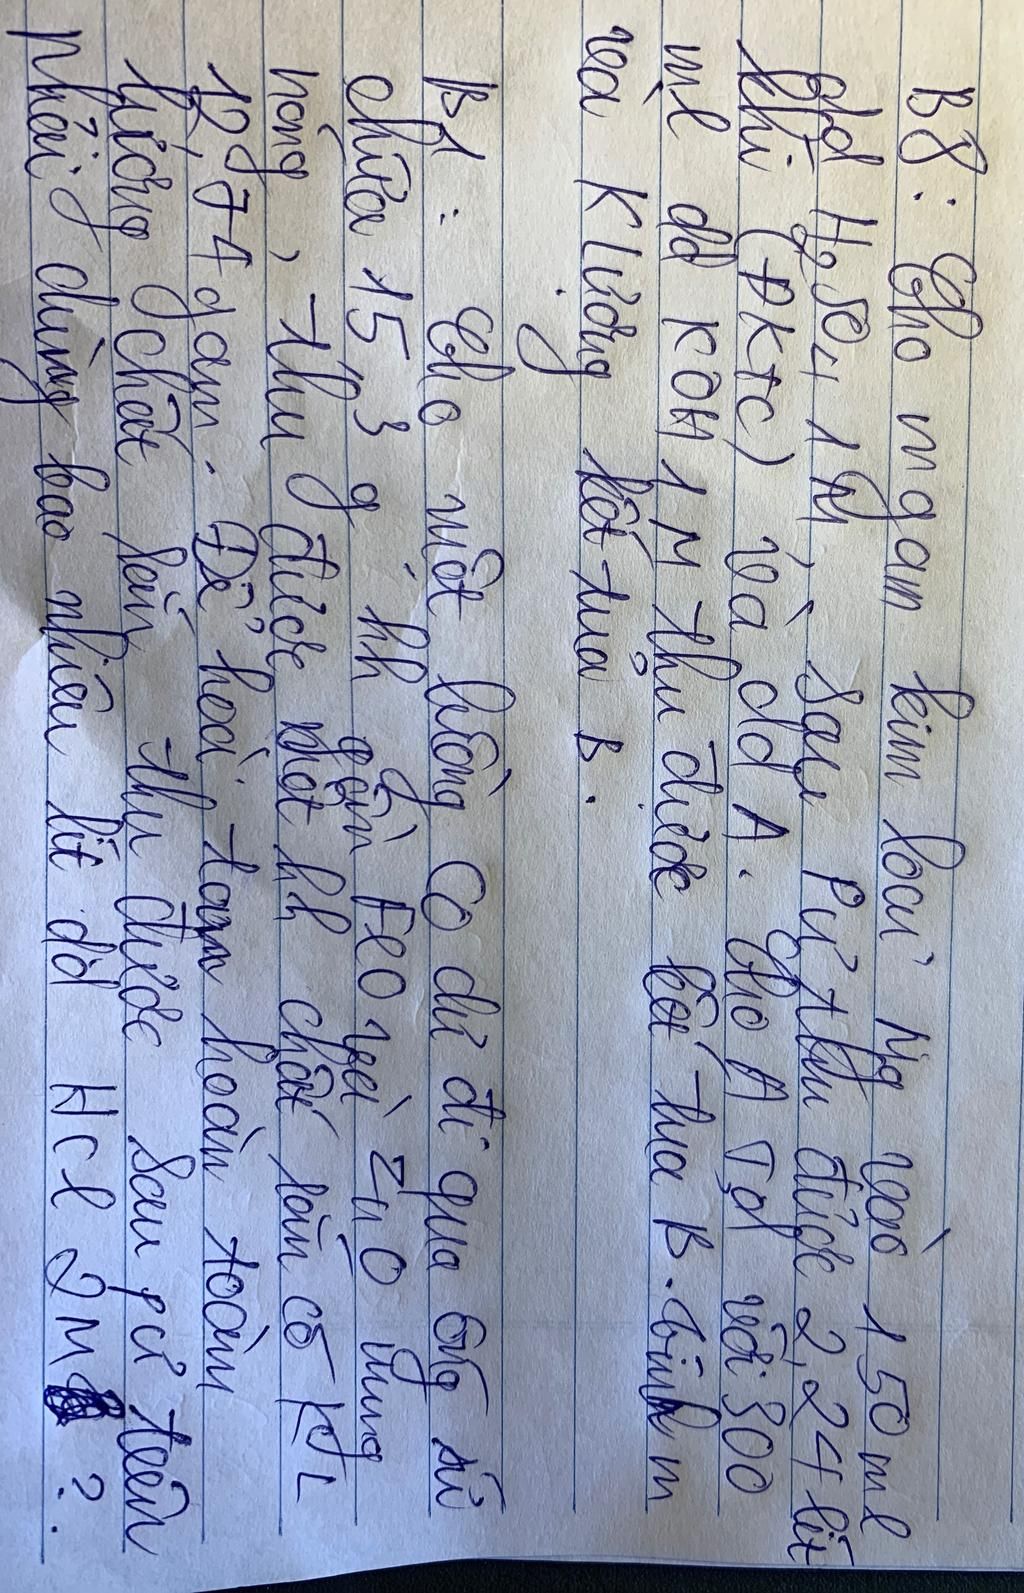 B8: Cho m gam kim loại Mg vào 150ml
dd H2SO4 1M, sau pứ thu được 2,24 lít
khí (ĐKTC) và dd A. Cho A Td với 300
ml dd KOH 1M thu được kết tủa B. Tính m
và K lượng kết tủa B.
B1: Cho một luồng CO dư đi qua ống sứ
chứa 15,3 g hh gồm FeO và ZnO nung
nóng, thu được một hh chất rắn có KL
12,74 gam. Để hoà tan hoàn toàn
lượng chất rắn thu được sau pứ trên
phải dùng bao nhiêu lít dd HCl 2M ?.